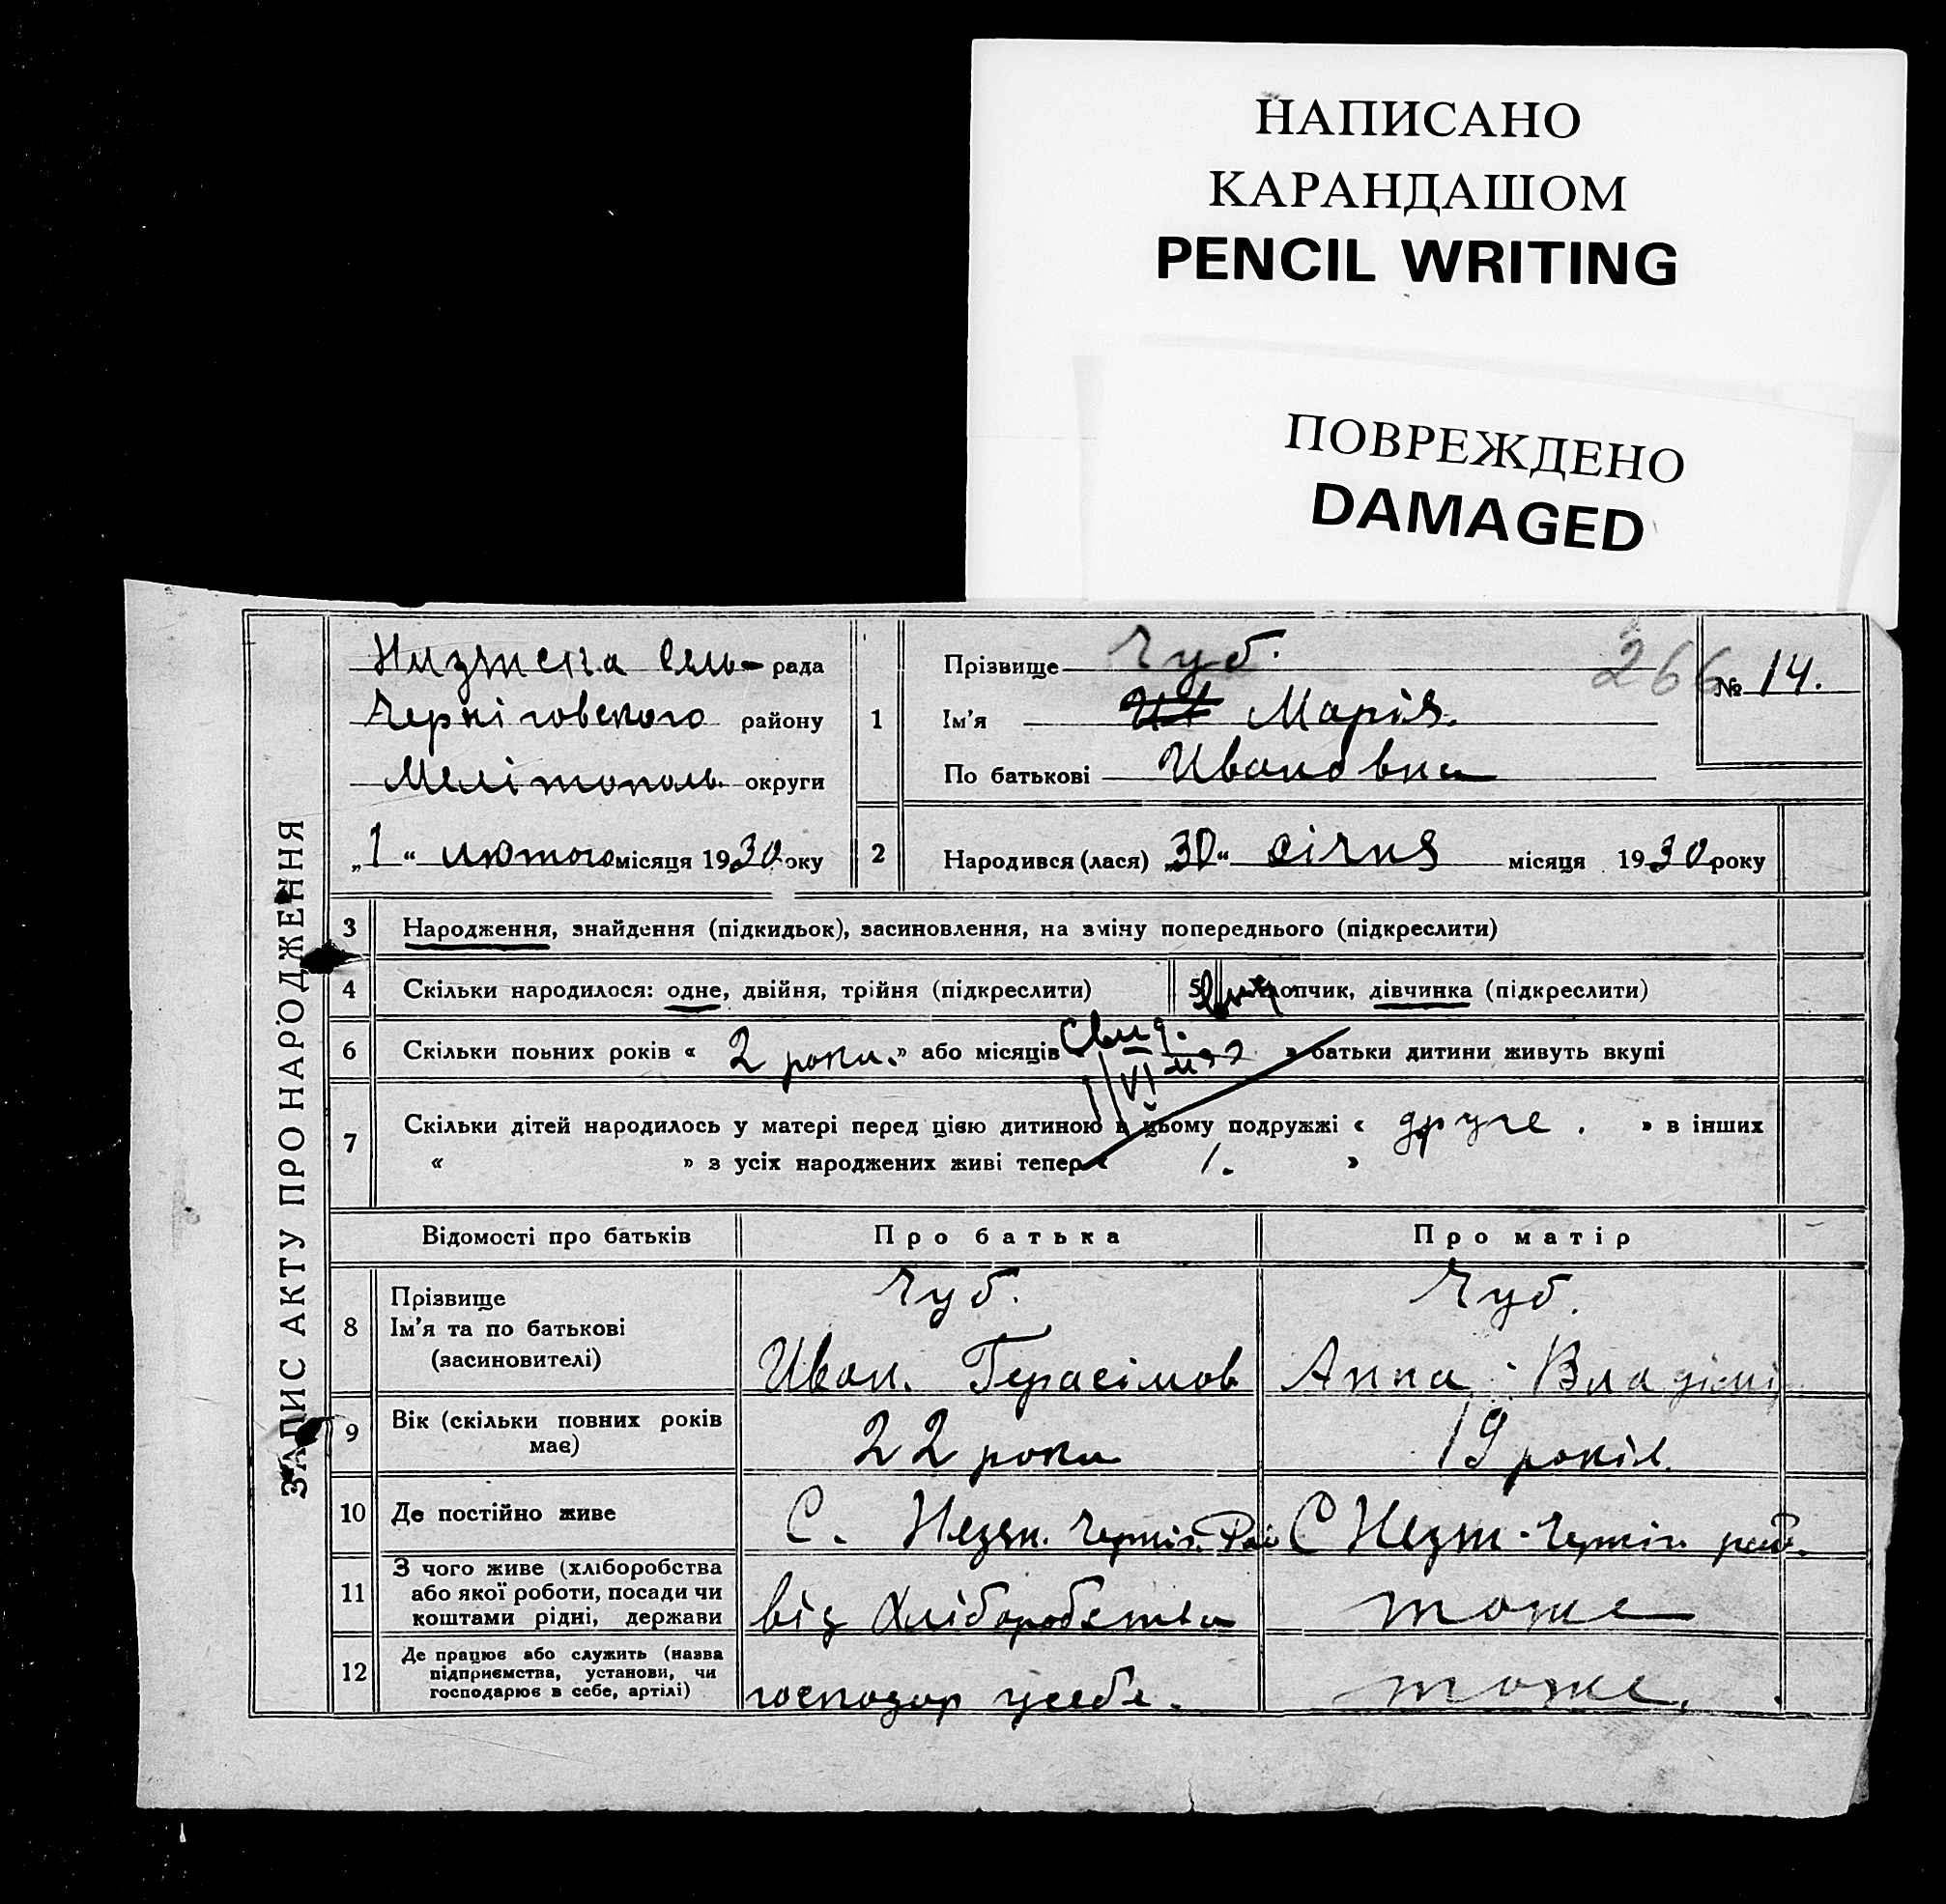 НАПИСАНО
КАРАНДАШОМ
PENCIL WRITING
ПОВРЕЖДЕНО
DAMAGED
ЗАПИС АКТУ ПРО НАРОДЖЕННЯ
рада
Чернiговського району
Мелiтополь округи
„1“ лютого місяця 1930 року
266
№ 14.
1
Прізвище Чуб.
Ім'я Марiя.
По батькові Ивановна
2 Народився (лася) „30“ сiчня місяця 1930 року
3 Народження, знайдення (підкидьок), засиновлення, на зміну попереднього (підкреслити)
4 Скільки народилося: одне, двійня, трійня (підкреслити)
5 хлопчик, дівчинка (підкреслити)
6 Скільки повних років « 2 роки. » або місяців » батьки дитини живуть вкупі
Свид.
VI
7 Скільки дітей народилось у матері перед цією дитиною в цьому подружжі « друге. » в інших
« » з усіх народжених живі тепер « 1. »
Відомості про батьків Про батька Про матір
8 Прізвище
Ім'я та по батькові
(засиновителі)
Чуб.
Иван. Герасiмов
Чуб.
Анна Владiмi
9 Вік (скільки повних років
має)
22 роки
19 рокiв.
10 Де постійно живе
С. Чернiг. Рай
С Чернiг. рай.
11 З чого живе (хліборобства
або якої роботи, посади чи
коштами рідні, держави
вiд Хлiборобства
тоже
12 Де працює або служить (назва
підприємства, установи, чи
господарює в себе, артілі)
господар усебе.
тоже.